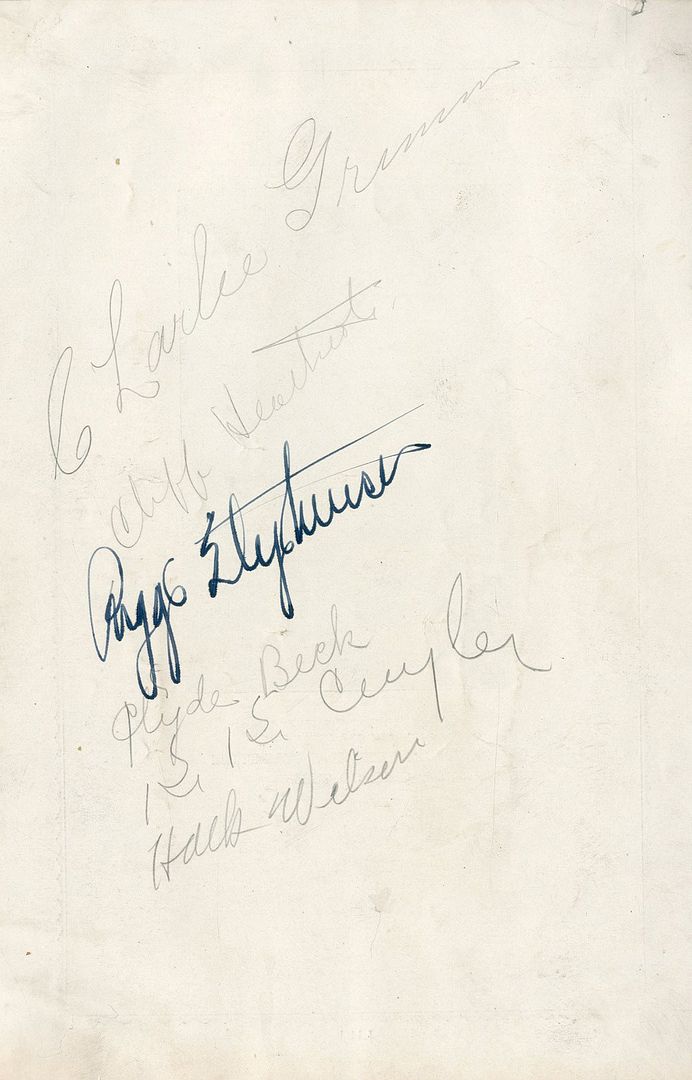 Charlie Grimm
Cliff Heathcote
Riggs Stephenson
Clyde Beck
K. K. Cuyler
Hack Wilson